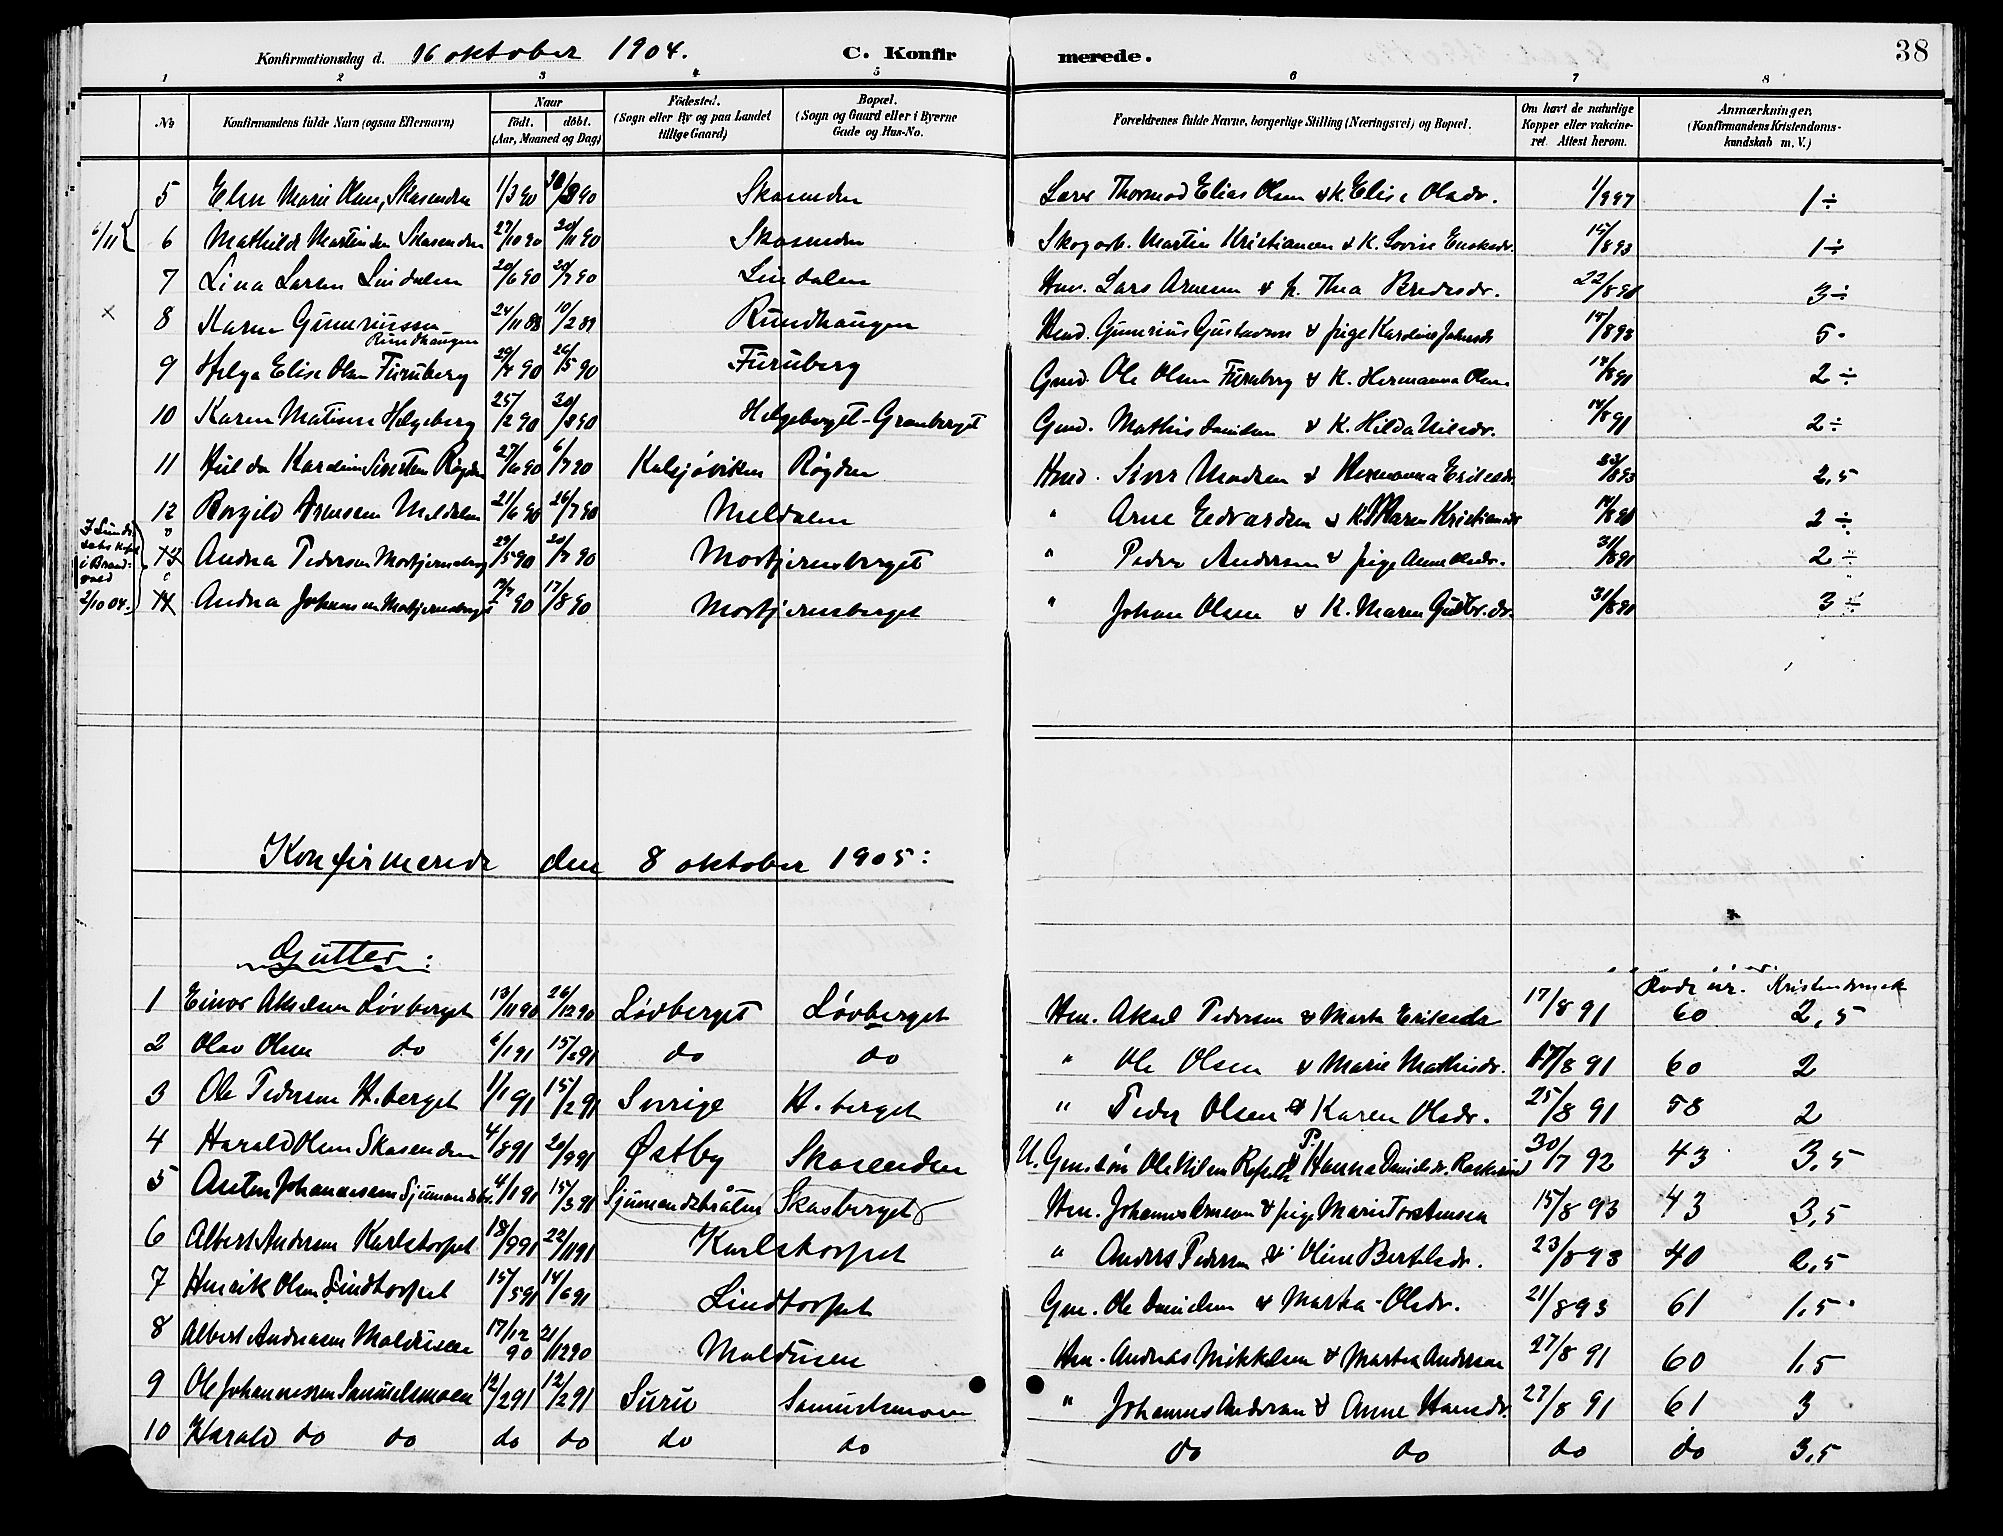 Konfirmationsdag d. 16 oktober 1904. C. Konfirmerede. 38
1 2 3 4 5 6 7 8
No
Konfirmandens fulde Navn (ogsaa Efternavn)
Naar
født. døbt.
(Aar, Maaned og Dag)
Födested.
(Sogn eller By og paa Landet
tillige Gaard)
Bopæl.
(Sogn og Gaard eller i Byerne
Gade og Hus-No.
Forældrenes fulde Navne, borgerlige Stilling (Næringsvei) og Bopæl.
Om havt de naturlige
Kopper eller vakcine-
ret. Attest herom.
Anmærkninger,
(Konfirmandens Kristendoms-
kundskab m. V.)
5 Elen Marie Olsen, Skasenden 1/3 90 Skasenden Thormod Elias Olsen & K. Elise Olsdr. 1 ÷
6/11 { 6 Mathilde Martinsen Skasenden 27/10 90 Skasenden Skogarb. Martin Kristiansen & K. Lovise 15/8 93 1 ÷
7 Lina Larsen Lindalen 20/6 90 20/7 90 Lindalen Hm. Lars Arnesen & K. Thea Bredesdr. 22/8 91 3 ÷
× 8 Karen Guneriussen Rundhaugen 24/11 88 10/2 89 Rundhaugen Hmd. Gunerius Gustavsen & pige Karoline 15/8 93 5 -
9 Helga Elise Olsen Furuberg 29/4 90 26/5 90 Furuberg Gmd. Ole Olsen Furuberg & K. Hermanna Olsen 14/8 91 2 ÷
10 Karen Matisen Helgeberg 25/2 90 Helgeberget - Granberget Gmd. Mathis Danielsen & K. Hilda Nilsdr. 14/8 91 2 ÷
11 Hulda Karoline Siversten Røgden 27/6 90 6/7 90 Kalsjøviken Røgden Hmd. Siver Madsen & Hermanna Eriksdr. 23/8 93 2,5
12 Borgild Arnessen Meldalen 21/6 90 26/7 90 Meldalen " Arne Edvardsen & K. Maren Kristiansdr 2 ÷
13 Andrea Pedersen Mortjernsberg 29/5 90 20/7 90 Mortjernsberget " Peder Andersen & pige Anne Olsdr. 31/8 91 2 ÷
i Brand-
vold
2/10 04.
14 Andrea Johansen Mortjernsberget 17/8 90 Mortjernsberget " Johan Olsen & K. Maren Gulbr.dr. 31/8 91 3 ÷
Konfirmerede den 8 oktober 1905:
Gutter:
Kode nr. Kristendomsk
1 Einar Akselsen Løvberget 13/11 90 26/12 90 Løvberget Løvberget Hm. Aksel Pedersen & Marta Eriksdr 17/8 91 60 2,5
2 Olav Olsen do 6/1 91 15/2 91 do do " Ole Olsen & Marie Mathisdr. 17/8 91 60 2
3 Ole Pedersen H.berget 1/1 91 15/2 91 Sverige H. berget " Peder Olsen & Karen Olsdr. 25/8 91 58 2
4 Harald Olsen Skasenden 4/8 91 20/9 91 Østby Skasenden U. Gmsøn Ole Nilsen & P. Hanna Danielsdr. 30/7 92 43 3,5
5 Anton Johannesen 4/1 91 15/3 91 Sjumandsbråten Skasberget Hm. Johannes Arneson & pige Marie Torstensen 15/8 93 43 3,5
6 Albert Andersen Karlstorpet 18/9 91 22/11 91 Karlstorpet " Anders Pedersen & Oline Bertelsdr. 23/8 93 40 2,5
7 Henrik Olsen Lindtorpet 15/5 91 14/6 91 Lindtorpet Gm. Ole Danielsen & Marta Olsdr. 21/8 93 61 1,5
8 Albert Andreasen Moldusen 17/12 90 21/12 90 Moldusen Hm. Andreas Mikkelsen & Martea Andersen 27/8 91 60 1,5
9 Ole Johannessen Samuelsmoen 12/2 91 12/2 91 Suru Samuelsmoen " Johannes Anderson & Anne Hansdr. 27/8 91 61 3
10 Harald do do do do do do do do do do 3,5